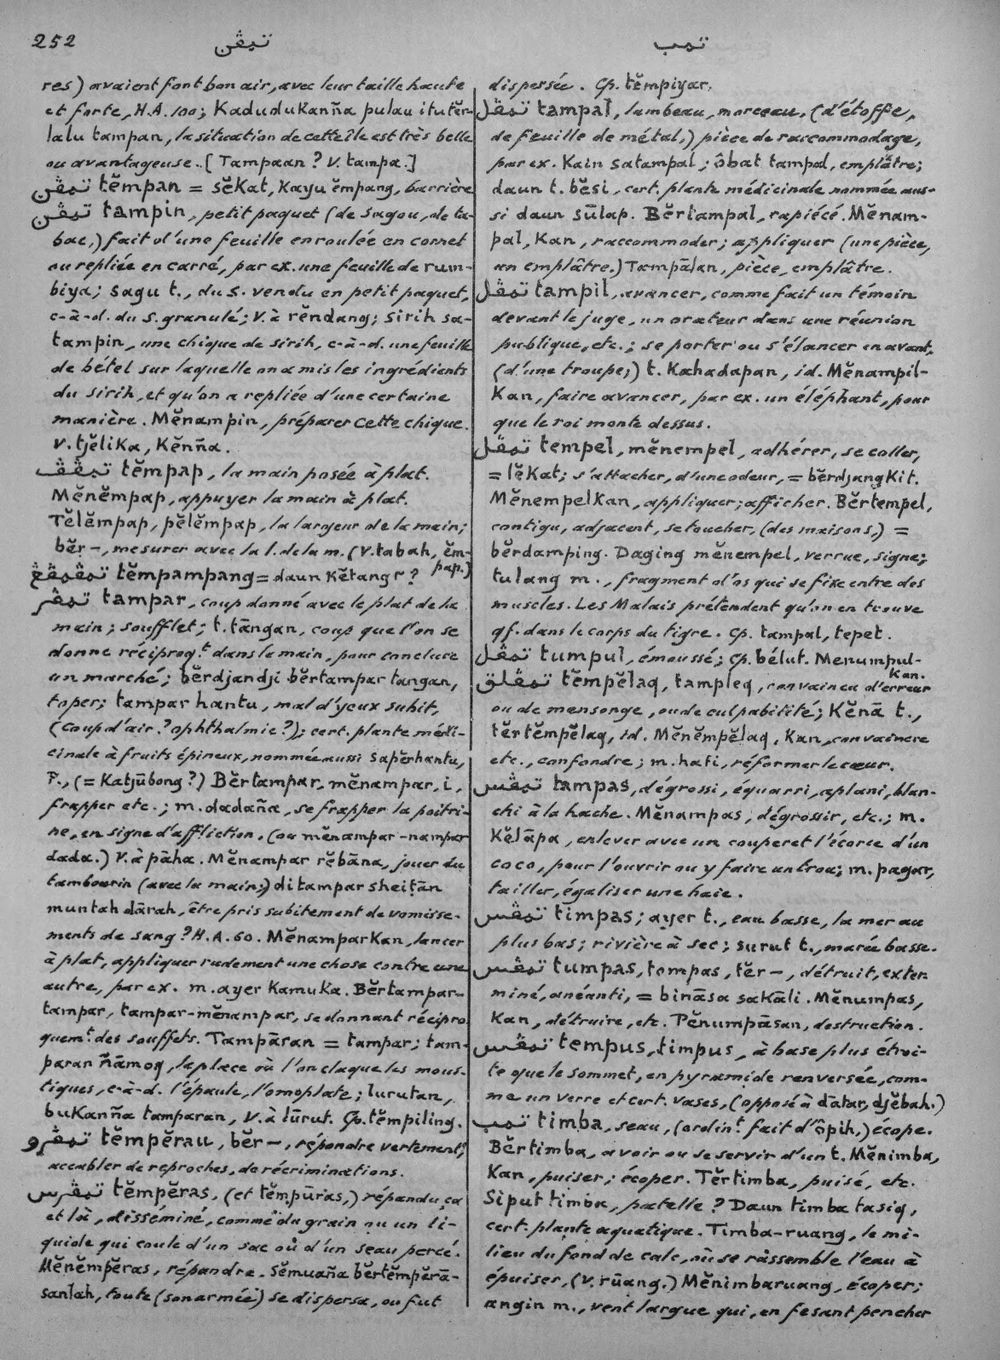 252
تمڤن
تمب
res) avaient fort bon air, avec leur taille haute
et forte, H.A. 100; Kadudukanña pulau itu tĕr-
lalu tampan, la situation de cette île est très belle
ou avantageuse. [Tampaan? v. tampa.]
تمڤن tĕmpan = sĕkat, Kayu ĕmpang, barrière
تمڤن tampin, petit paquet (de sagou, de ta-
bac,) fait d'une feuille enroulée en cornet
ou repliée en carré, par ex. une feuille de rum-
biya; sagu t., du s. vendu en petit paquet,
c-à-d. du s. granulé; v. à rĕndang; sirih sa-
tampin, une chique de sirih, c-à-d. une feuille
de bétel sur laquelle on a mis les ingrédients
du sirih, et qu'on a repliée d'une certaine
manière. Mĕnampin, préparer cette chique.
v. tjĕlika, Kĕnña.
تمڤڤ tĕmpap, la main posée à plat.
Mĕnĕmpap, appuyer la main à plat.
Tĕlĕmpap, pĕlĕmpap, la largeur de la main;
bĕr-, mesurer avec la l. de la m. (v. tabah, ĕm-
pap.)
تمڤمڤڠ tĕmpampang = daun Kĕtang2?
تمڤر tampar, coup donné avec le plat de la
main; soufflet; t. tāngan, coup que l'on se
donne réciproq.t dans la main, pour conclure
un marché; bĕrdjandji bĕrtampar tangan,
toper; tampar hantu, mal d'yeux subit,
(coup d'air? ophthalmie?); cert. plante médi-
cinale à fruits épineux, nommée aussi sapĕrhantu,
P., (= Katjūbong?) Bĕrtampar, mĕnampar, i,
frapper etc.; m. dadaña, se frapper la poitri-
ne, en signe d'affliction. (ou mĕnampar-nampar
dada.) v. à pāha. Mĕnampar rĕbāna, jouer du
tambourin (avec la main;) ditampar sheiṭān
muntah dārah, être pris subitement de vomisse-
ments de sang? H.A. 60. Mĕnamparkan, lancer
à plat, appliquer rudement une chose contre une
autre, par ex. m. ayer Kamuka. Bĕrtampar-
tampar, tampar-mĕnampar, se donnant récipro
quem.t des soufflets. Tampāran = tampar; tam-
paran ñāmoq, la place où l'on claque les mous-
tiques, c-à-d. l'épaule, l'omoplate; lurutan,
bukanña tamparan, v. à lūrut. Cp. tĕmpiling.
تمڤرو tĕmpĕrau, bĕr-, répondre vertement,
accabler de reproches, de récriminations.
تمڤرس tĕmpĕras, (et tĕmpūras,) répandu çà
et là, disséminé, comme du grain ou un li-
quide qui coule d'un sac où d'un seau percé.
Mĕnĕmpĕras, répandre. Sĕmuaña bĕrtĕmpĕrā-
sanlah, toute (son armée) se dispersa, ou fut
dispersée. Cp. tĕmpiyar.
تمڤل tampal, lambeau, morceau, (d'étoffe,
de feuille de métal,) pièce de raccommodage,
par ex. Kain satampal; ôbat tampal, emplâtre;
daun t. bĕsi, cert. plante médicinale nommée aus-
si daun sūlap. Bĕrtampal, rapiécé. Mĕnam-
pal, Kan, raccommoder; appliquer (une pièce,
un emplâtre.) Tampālan, pièce, emplâtre.
تمڤل tampil, avancer, comme fait un témoin
devant le juge, un orateur dans une réunion
publique, etc.; se porter ou s'élancer en avant,
(d'une troupe;) t. Kahadapan, id. Mĕnampil-
Kan, faire avancer, par ex. un éléphant, pour
que le roi monte dessus.
تمڤل tempel, mĕnempel, adhérer, se coller,
= lĕkat; s'attacher, d'une odeur, = bĕrdjangkit.
Mĕnempelkan, appliquer; afficher. Bĕrtempel,
contigu, adjacent, se toucher, (des maisons,) =
bĕrdamping. Daging mĕnempel, verrue, signe;
tulang m., fragment d'os qui se fixe entre des
muscles. Les Malais prétendent qu'on en trouve
qf. dans le corps du tigre. Cp. tampal, tepet.
تمڤل tumpul, émoussé; cp. bélut. Menumpul-
Kan.
تمڤلق tĕmpĕlaq, tampleq, convaincu d'erreur
ou de mensonge, ou de culpabilité; Kĕnā t.,
tĕrtĕmpĕlaq, id. Mĕnĕmpĕlaq, Kan, convaincre
etc., confondre; m. hati, réformer le cœur.
تمڤس tampas, dégrossi, équarri, aplani, blan-
chi à la hache. Mĕnampas, dégrossir, etc.; m.
Kĕlāpa, enlever avec un couperet l'écorce d'un
coco, pour l'ouvrir ou y faire un trou; m. pagar,
tailler, égaliser une haie.
تمڤس timpas; ayer t., eau basse, la mer au
plus bas; rivière à sec; surut t., marée basse.
تمڤس tumpas, tompas, tĕr-, détruit, exter-
miné, anéanti, = bināsa sakāli. Mĕnumpas,
Kan, détruire, etc. Pĕnumpāsan, destruction.
تمڤس tempus, timpus, à base plus étroi-
te que le sommet, en pyramide renversée, com-
me un verre et cert. vases, (opposé à dātar, djĕbah.)
تمب timba, seau, (ordin.t fait d'ôpih,) écope.
Bĕrtimba, avoir ou se servir d'un t. Mĕnimba,
Kan, puiser; écoper. Tĕrtimba, puisé, etc.
Siput timba, patelle? Daun timba tasiq,
cert. plante aquatique. Timba-ruang, le mi-
lieu du fond de cale, où se rassemble l'eau à
épuiser, (v. rūang.) Mĕnimbaruang, écoper;
angin m., vent largue qui, en fesant pencher